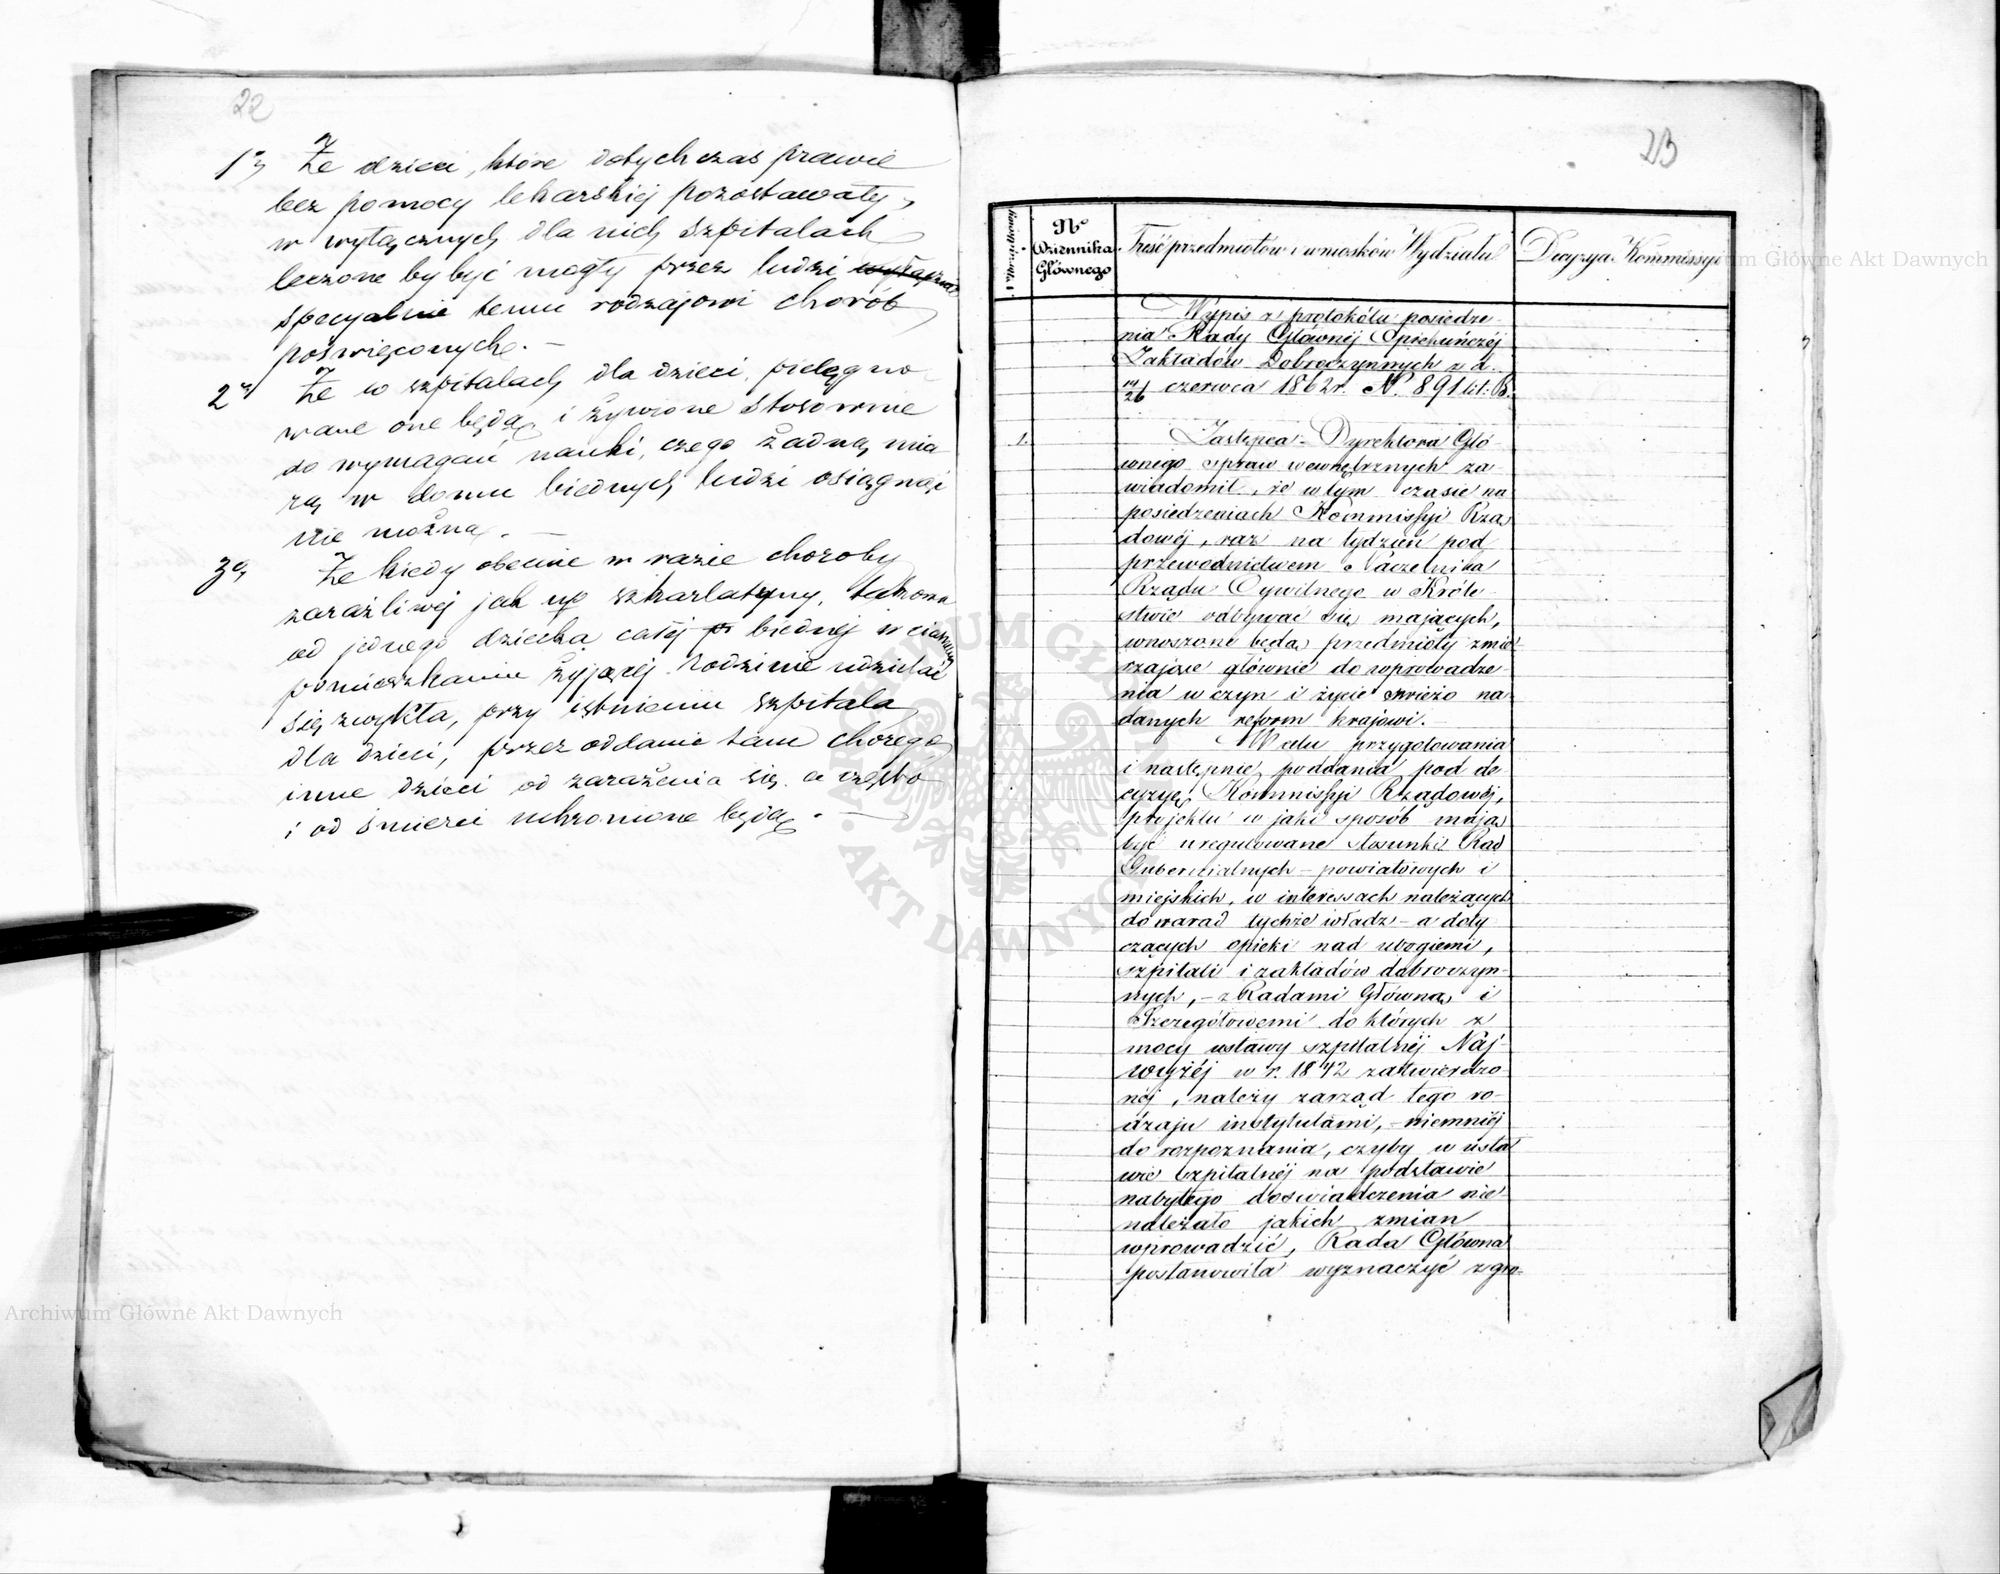 22
1º, Że dzieci, które dotychczas prawie
bez pomocy lekarskiej pozostawały,
w wyłącznych dla nich szpitalach
leczone by być mogły przez ludzi wyłącznie
specyalnie temu rodzajowi chorób
poświęconych. —
2º, Że w szpitalach dla dzieci, pielęgno
wane one będą i żywione stosownie
do wymagań nauki, czego żadną mia
rą w domu biednych ludzi osiągnąć
nie można. —
3º, Że kiedy obecnie w razie choroby
zaraźliwej jak np szkarlatyny, takowa
od jednego dziecka całej biednej w ciasnem
pomieszkaniu żyjącej rodzinie udzielać
się zwykła, przy istnieniu szpitala
dla dzieci, przez oddanie tam chorego
inne dzieci od zarażenia się a często
i od śmierci uchronione będą. —
23
Nº
Dziennika
Głównego
Treść przedmiotów i wniosków Wydziału
Decyzya Kommissyi
Wypis z protokółu posiedze-
nia Rady Głównej Opiekuńczej
Zakładów Dobroczynnych z d.
14/26 czerwca 1862 r. Nº 891 lit: B.
1. Zastępca Dyrektora Głó-
wnego spraw wewnętrznych za-
wiadomił, że w tym czasie na
posiedzeniach Kommissyi Rzą
dowéj, raz na tydzień pod
przewodnictwem Naczelnika
Rządu Cywilnego w Króle-
stwie odbywać się mających,
wnoszone będą przedmioty zmie-
rzające głównie do wprowadze-
nia w czyn i życie świeżo na-
danych reform krajowi. —
W celu przygotowania
i następnie poddania pod de
cyzyę Kommissyi Rządowéj,
projektu w jaki sposób mają
być uregulowane stosunki Rad
Gubernialnych – powiatowych i
miejskich, w interessach należących
do narad tychże władz – a doty
czących opieki nad ubogiemi,
szpitali i zakładów dobroczyn-
nych, – z Radami Główną i
Szczegółowemi do których z
mocy ustawy szpitalnéj Naj-
wyżéj w r. 1842 zatwierdzo-
néj, należy zarząd tego ro-
dzaju instytutami, – niemniéj
do rozpoznania, czyby w usta
wie szpitalnéj na podstawie
nabytego doświadczenia nie
należało jakich zmian
wprowadzić, Rada Główna
postanowiła wyznaczyć z gro-
Archiwum Główne Akt Dawnych
ARCHIWUM GŁÓWNE AKT DAWNYCH